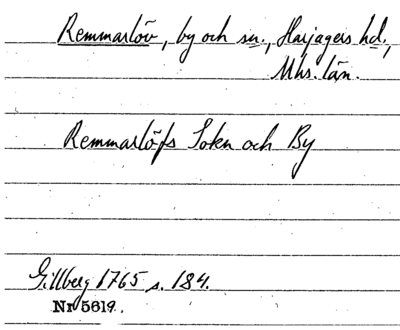 Remmarlöv, by och sn., Harjagers hd.,
Mhs. län.
Remmarlöfs Sokn och By
Gillberg 1765 s. 184.
Nr 5619.